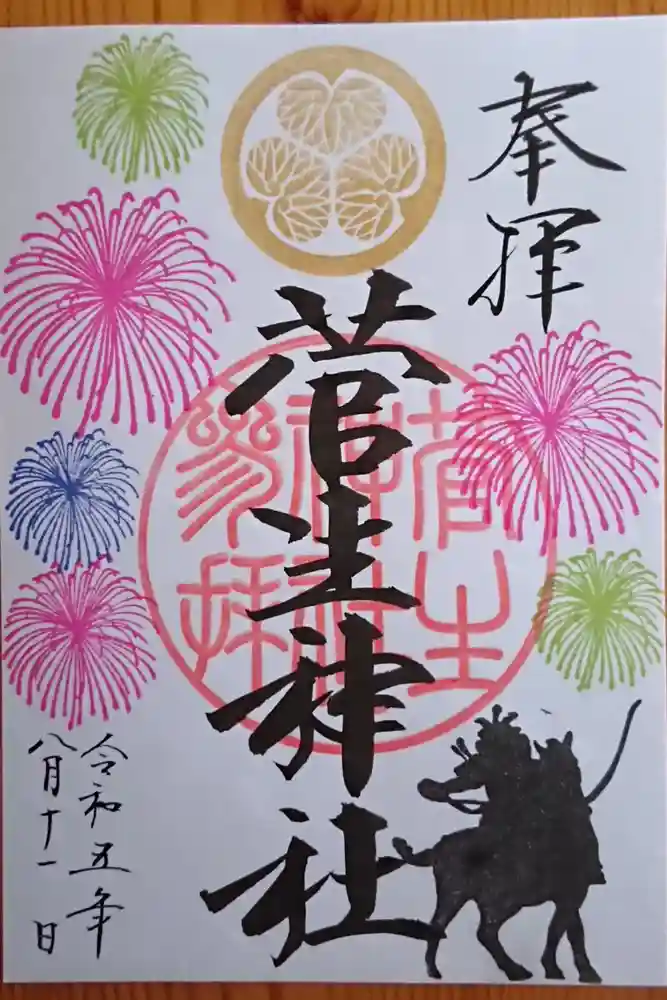 奉拝
菅生神社
菅生
神社
参拝
令和五年
八月十一日